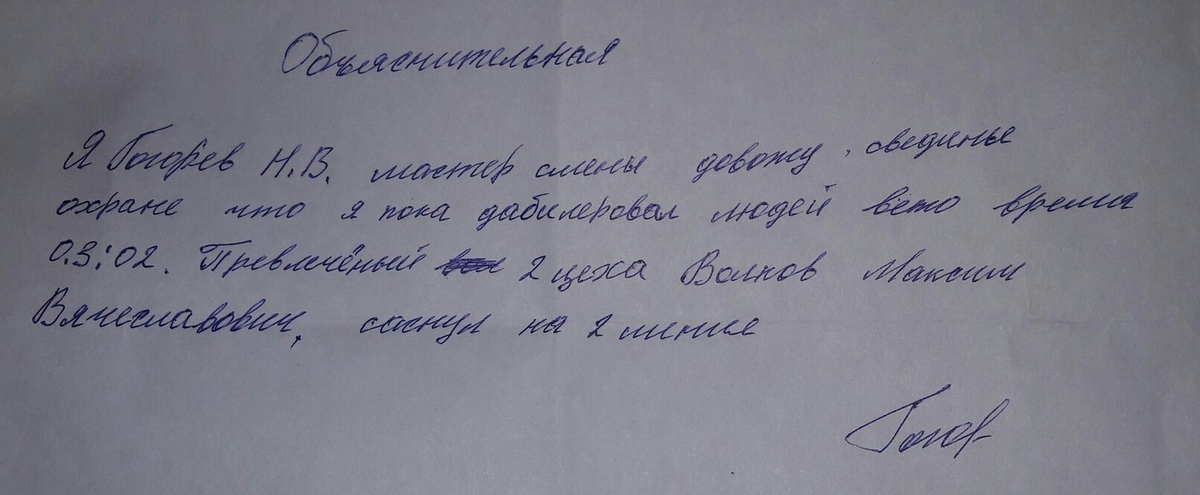 Объяснительная
Я Гогорев Н.В. мастер смены довожу свединье
охране что я пока дабилеровал людей вето время
03:02. Превлечёный 2 цеха Волков Максим
Вячеславович, саснул на 2 линие
Гогор